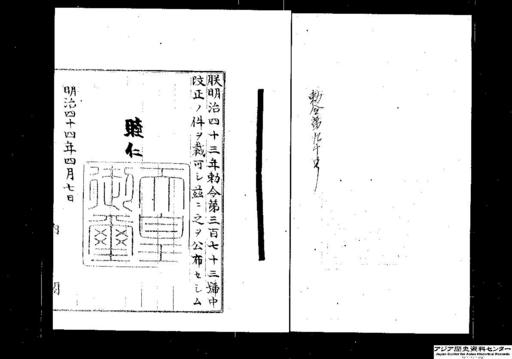 朕明治四十三年勅令第三百七十三號中
改正ノ件ヲ裁可シ茲ニ之ヲ公布セシム
睦仁
天皇御璽
明治四十四年四月七日
内閣
勅令第九十
アジア歴史資料センター
Japan Center for Asian Historical Records